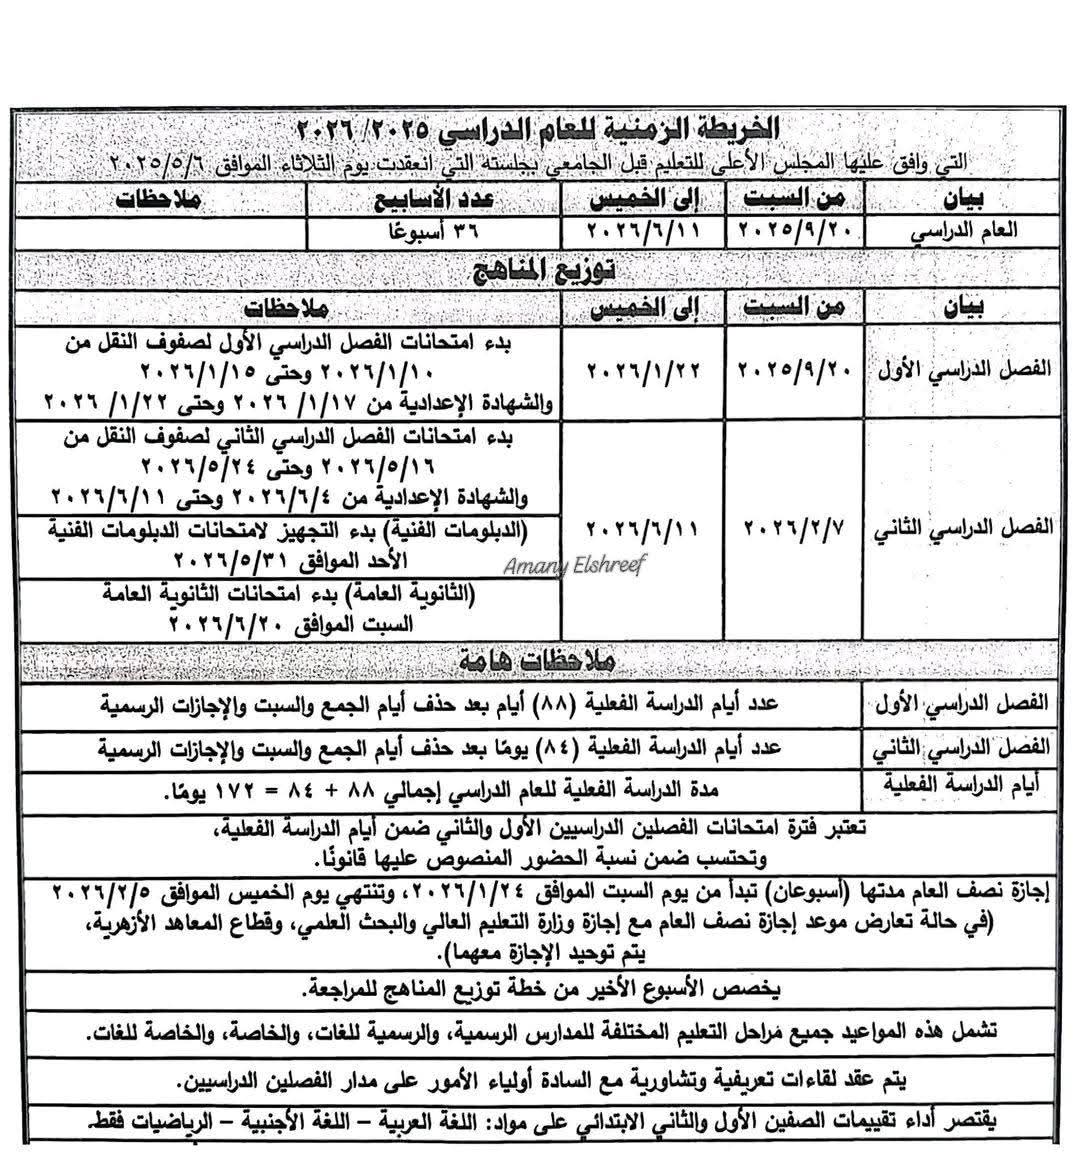 الخريطة الزمنية للعام الدراسي ٢٠٢٥/ ٢٠٢٦
التي وافق عليها المجلس الأعلى للتعليم قبل الجامعي بجلسته التي انعقدت يوم الثلاثاء الموافق ٢٠٢٥/٥/٦
بيان من السبت إلى الخميس عدد الأسابيع ملاحظات
العام الدراسي ٢٠٢٥/٩/٢٠ ٢٠٢٦/٦/١١ ٣٦ أسبوعًا
توزيع المناهج
بيان من السبت إلى الخميس ملاحظات
الفصل الدراسي الأول ٢٠٢٥/٩/٢٠ ٢٠٢٦/١/٢٢
بدء امتحانات الفصل الدراسي الأول لصفوف النقل من
٢٠٢٦/١/١٠ وحتى ٢٠٢٦/١/١٥
والشهادة الإعدادية من ٢٠٢٦ /١/١٧ وحتى ١/٢٢/ ٢٠٢٦
الفصل الدراسي الثاني ٢٠٢٦/٢/٧ ٢٠٢٦/٦/١١
بدء امتحانات الفصل الدراسي الثاني لصفوف النقل من
٢٠٢٦/٥/١٦ وحتى ٢٠٢٦/٥/٢٤
والشهادة الإعدادية من ٢٠٢٦/٦/٤ وحتى ٢٠٢٦/٦/١١
(الدبلومات الفنية) بدء التجهيز لامتحانات الدبلومات الفنية
الأحد الموافق ٢٠٢٦/٥/٣١
Amany Elshreef
(الثانوية العامة) بدء امتحانات الثانوية العامة
السبت الموافق ٢٠٢٦/٦/٢٠
ملاحظات هامة
الفصل الدراسي الأول عدد أيام الدراسة الفعلية (٨٨) أيام بعد حذف أيام الجمع والسبت والإجازات الرسمية
الفصل الدراسي الثاني عدد أيام الدراسة الفعلية (٨٤) يومًا بعد حذف أيام الجمع والسبت والإجازات الرسمية
أيام الدراسة الفعلية مدة الدراسة الفعلية للعام الدراسي إجمالي ٨٨ + ٨٤ = ١٧٢ يومًا.
تعتبر فترة امتحانات الفصلين الدراسيين الأول والثاني ضمن أيام الدراسة الفعلية،
وتحتسب ضمن نسبة الحضور المنصوص عليها قانونًا.
إجازة نصف العام مدتها (أسبوعان) تبدأ من يوم السبت الموافق ٢٠٢٦/١/٢٤، وتنتهي يوم الخميس الموافق ٢٠٢٦/٢/٥
(في حالة تعارض موعد إجازة نصف العام مع إجازة وزارة التعليم العالي والبحث العلمي، وقطاع المعاهد الأزهرية،
يتم توحيد الإجازة معهما).
يخصص الأسبوع الأخير من خطة توزيع المناهج للمراجعة.
تشمل هذه المواعيد جميع مراحل التعليم المختلفة للمدارس الرسمية، والرسمية للغات، والخاصة، والخاصة للغات.
يتم عقد لقاءات تعريفية وتشاورية مع السادة أولياء الأمور على مدار الفصلين الدراسيين.
يقتصر أداء تقييمات الصفين الأول والثاني الابتدائي على مواد: اللغة العربية – اللغة الأجنبية – الرياضيات فقط.